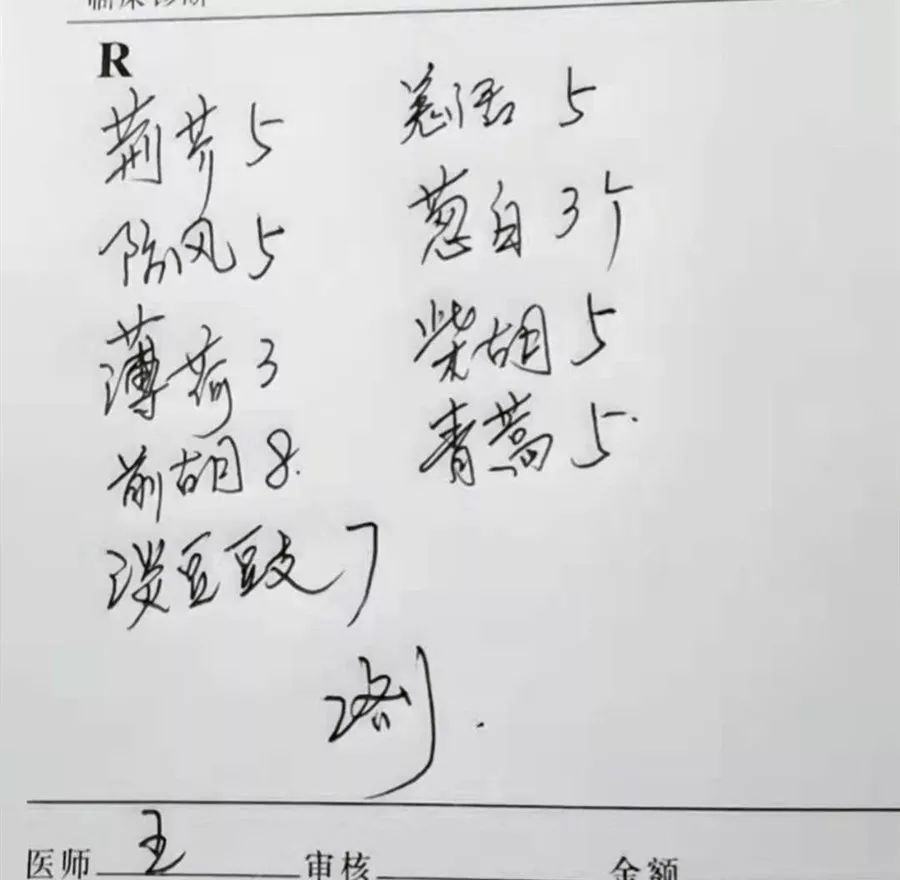 临床诊断
R
荆芥 5
羌活 5
防风 5
葱白 3个
薄荷 3
柴胡 5
前胡 8.
青蒿 5.
淡豆豉 7
2剂.
医师 王 审核 金额